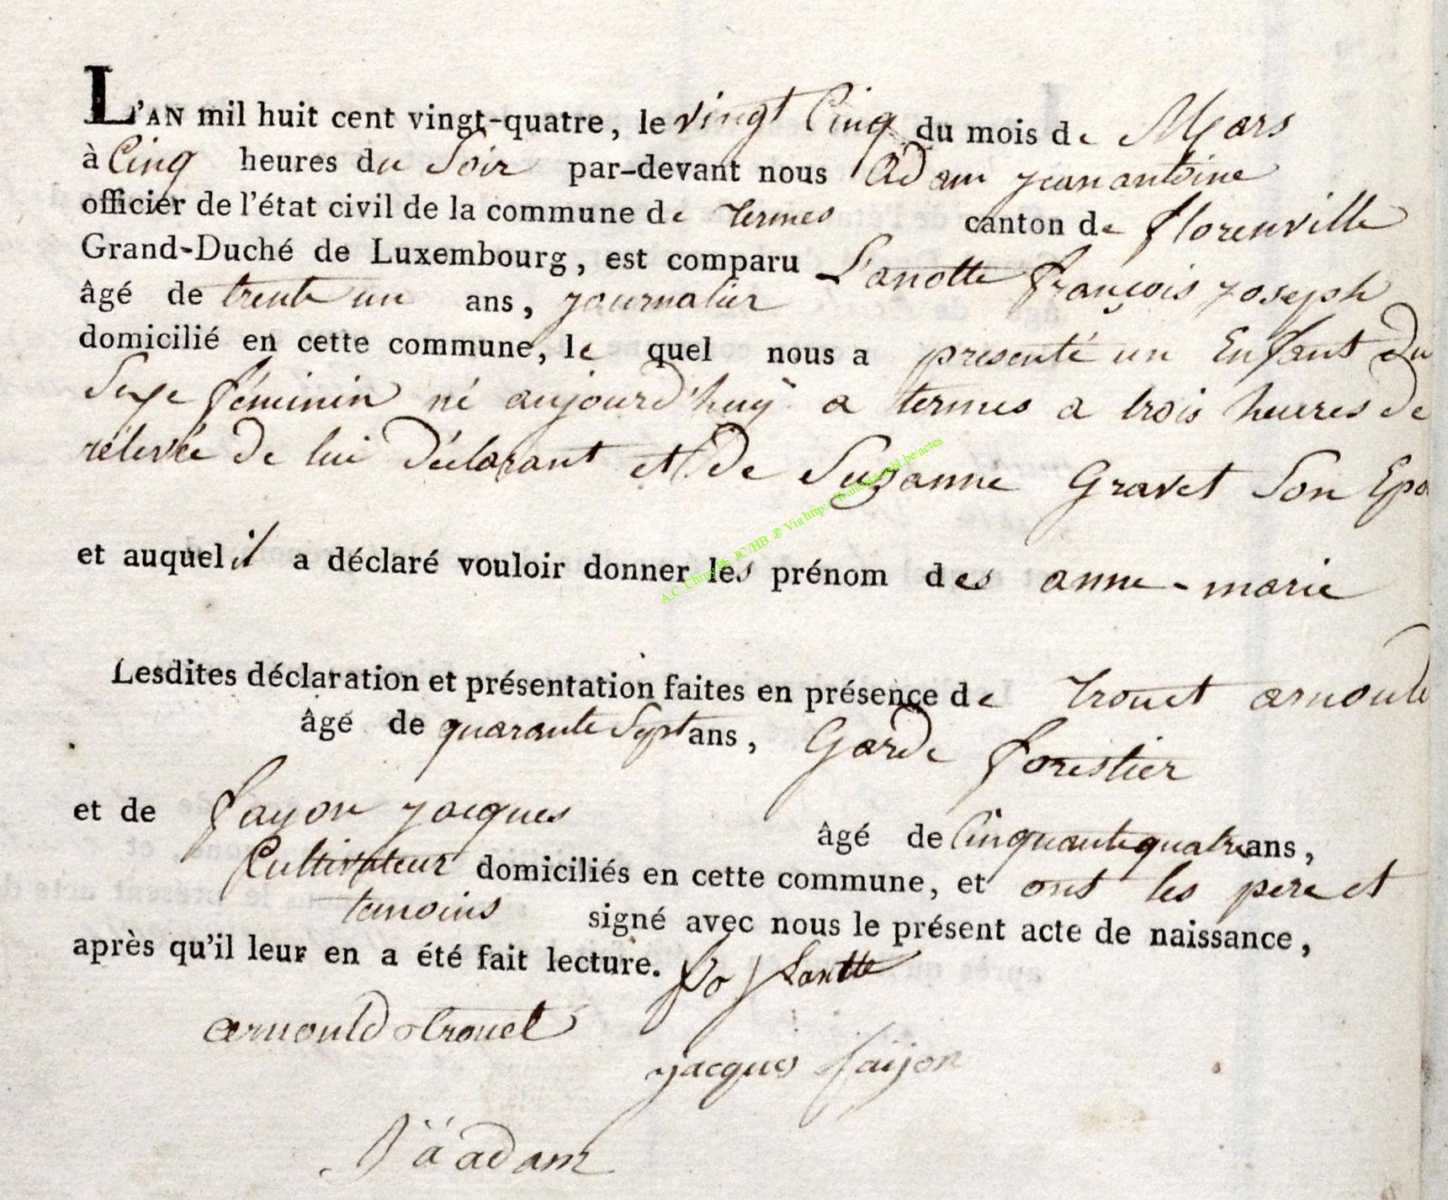 L'AN mil huit cent vingt-quatre, le vingt Cinq du mois de Mars
à Cinq heures du Soir par-devant nous Adam jean antoine
officier de l'état civil de la commune de termes canton de florenville
Grand-Duché de Luxembourg, est comparu Lanotte françois joseph
âgé de trente un ans, journalier
domicilié en cette commune, le quel nous a presenté un Enfant du
Sexe féminin né aujourd'huÿ a termes a trois heures de
rélevée de lui déclarant et de Suzanne Gravet Son Epo
et auquel il a déclaré vouloir donner les prénom des anne-marie
Lesdites déclaration et présentation faites en présence de trouet arnould
âgé de quarante Sept ans, Garde forestier
et de fayon jacques âgé de Cinquante quatre ans,
Cultivateur domiciliés en cette commune, et ont les pere et
temoins signé avec nous le présent acte de naissance,
après qu'il leur en a été fait lecture.
arnould trouet
jacques faÿon
J a adam
A.C. Chiny JC/HB Via http